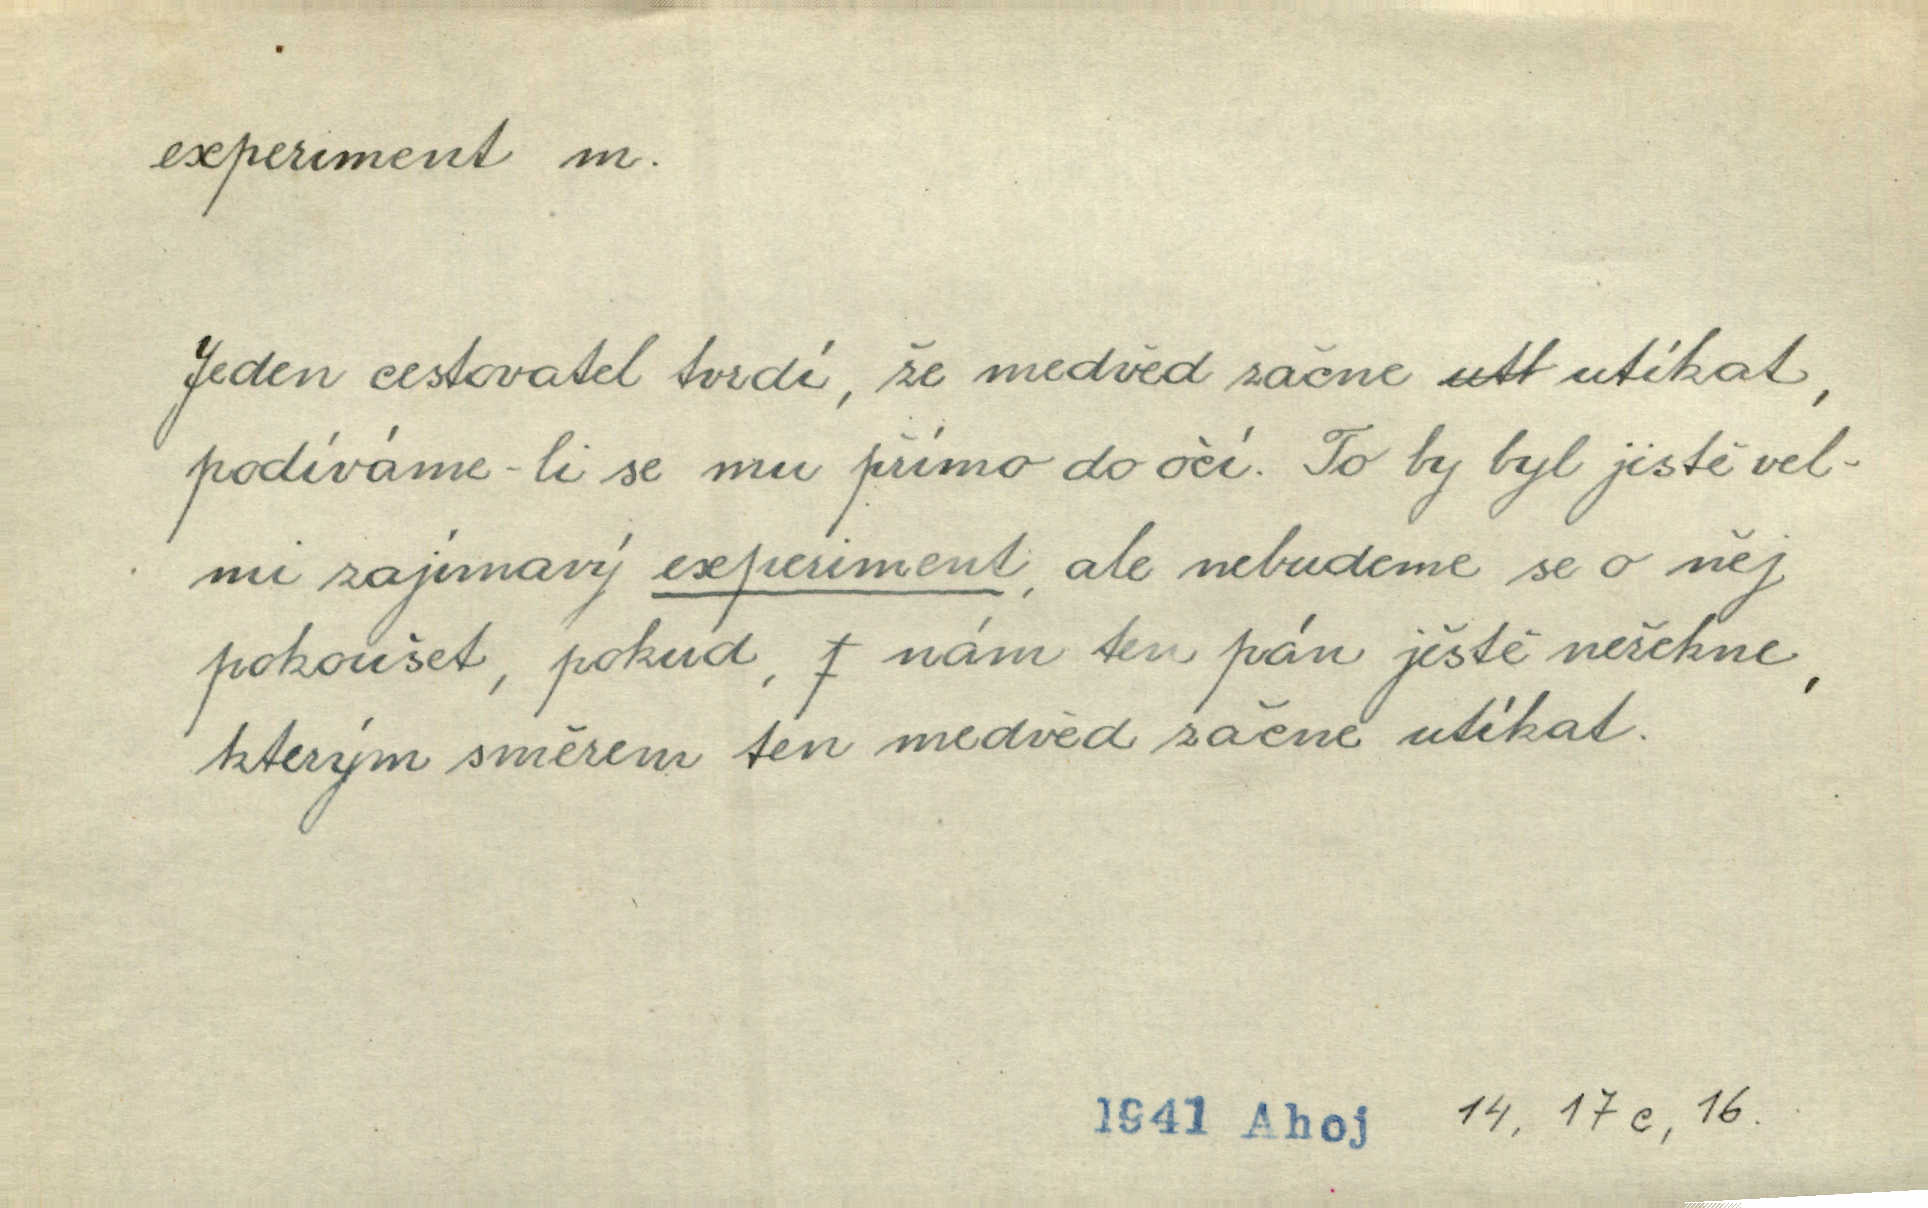 experiment m.
Jeden cestovatel tvrdí, že medvěd začne utl utíkat,
podíváme-li se mu přímo do očí. To by byl jistě vel-
mi zajímavý experiment, ale nebudeme se o něj
pokoušet, pokud, j nám ten pán ještě neřekne,
kterým směrem ten medvěd začne utíkat.
1941 Ahoj 14, 17 c, 16.